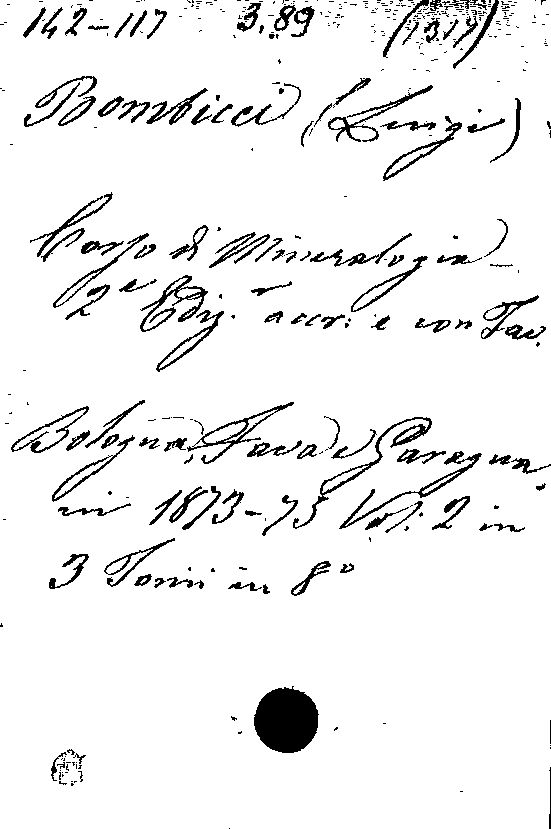 142-117 3.89 (1317)
Bombicci (Luigi)
Corso di Mineralogia -
2a Ediz.r accr: e con Tav.
Bologna, Fava e Garagna
ni 1873-75 Vol: 2 in
3 Tomi in 8º